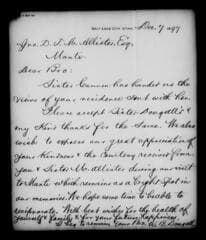 SALT LAKE CITY, UTAH, Dec. 7 1897
Jno. D. T. McAllister, Esq,
Manti
Dear Bro:
Sister Cannon has handed us the
views of your residence sent with her.
Please accept Sister Dougall's &
my kind thanks for the same. We also
wish to express our great appreciation of
your kindness & the courtesy received from
you & Sister McAllister during our visit
to Manti which remains as a bright spot in
our memories. We hope some time to be able to
reciprocate. With best wishes for the health of
yourself & family & for your future happiness,
I beg to remain Your Bro. W. B. Dougall